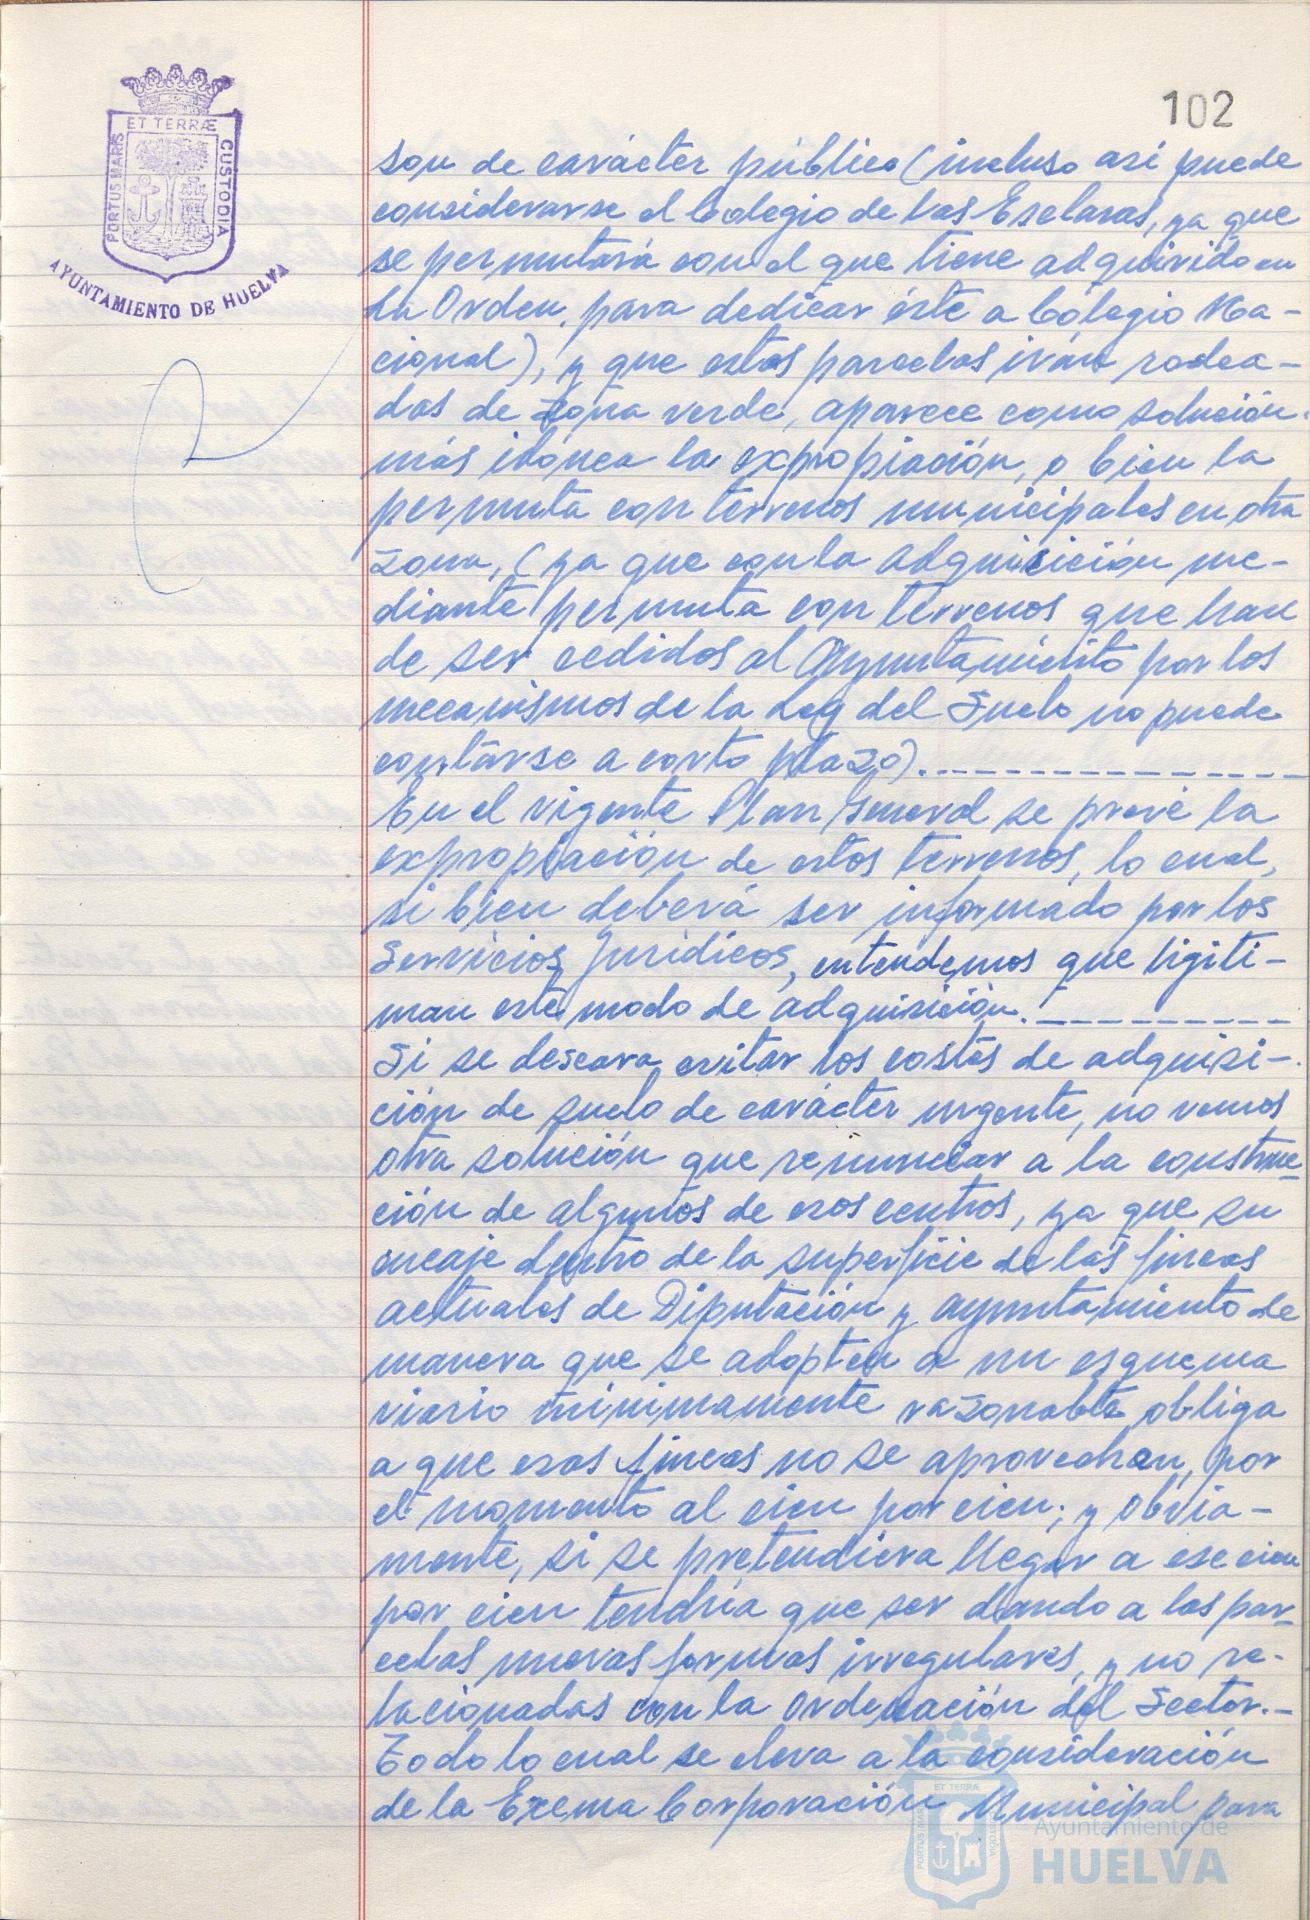 102
ET TERRÆ
PORTUS MARIS
CUSTODIA
AYUNTAMIENTO DE HUELVA
son de carácter público (incluso así puede
considerarse el Colegio de las Esclavas, ya que
se permutará con el que tiene adquirido en
La Orden, para dedicar éste a Colegio Na-
cional), y que estas parcelas irán rodea-
das de zona verde, aparece como solución
más idónea la expropiación, o bien la
permuta con terrenos municipales en otra
zona, (ya que con la adquisición me-
diante permuta con terrenos que han
de ser cedidos al Ayuntamiento por los
mecanismos de la Ley del Suelo no puede
contarse a corto plazo).
En el vigente Plan General se prevé la
expropiación de estos terrenos, lo cual,
si bien deberá ser informado por los
Servicios Jurídicos, entendemos que ligiti-
man este modo de adquisición.
Si se deseara evitar los costes de adquisi-
ción de suelo de carácter urgente, no vemos
otra solución que renunciar a la construc-
ción de algunos de esos centros, ya que su
encaje dentro de la superficie de las fincas
actuales de Diputación y Ayuntamiento de
manera que se adopten a un esquema
viario minimamente razonable obliga
a que esas fincas no se aprovechen, por
el momento al cien por cien; y obvia-
mente, si se pretendiera llegar a ese cien
por cien tendría que ser dando a las par-
celas nuevas formas irregulares, y no re-
lacionadas con la Ordenación del Sector.-
Todo lo cual se eleva a la consideración
de la Excma Corporación Municipal para
ET TERRÆ
PORTUS MARIS
CUSTODIA
Ayuntamiento de
HUELVA